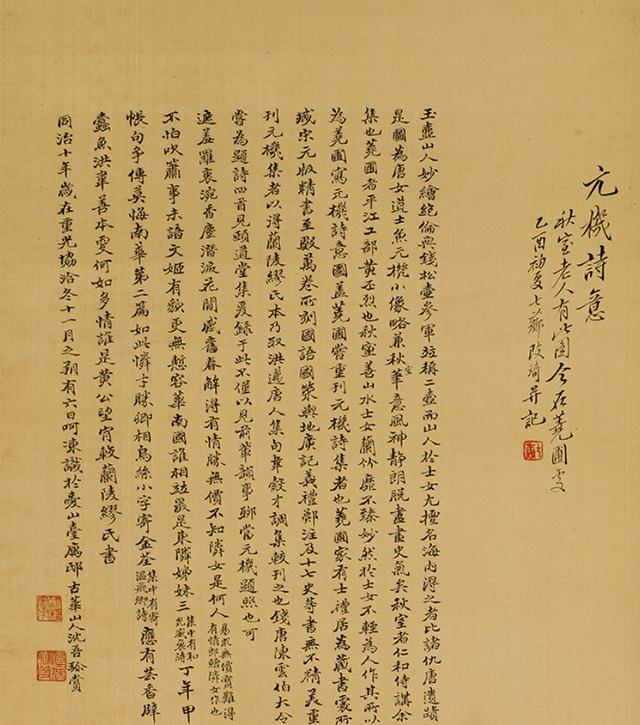 元機詩意
秋室老人有此圖今在蕘圃處
乙酉初夏七薌改琦并記
玉壺山人妙繪絕倫與錢松壺參軍並稱二壺而山人於士女尤擅名海內得之者比諸仇唐遺蹟
是圖為唐女道士魚元機小像略兼秋室筆意風神靜朗脫盡畫史氣矣秋室者仁和侍講余
集也蕘圃者平江工部黃丕烈也秋室善山水士女蘭竹靡不臻妙然於士女不輕為人作其所以
為蕘圃寫元機詩意圖蓋蕘圃嘗重刊元機詩集者也蕘圃家有士禮居為藏書處所
臧宋元版精書至數萬卷所刻國語國策輿地廣記義禮鄭注及十七史等書無不精美重
刊元機集者以得蘭陵繆氏本乃取洪邁唐人集句韋縠才調集較刊之也錢唐陳雲伯大令
嘗為題詩四首見頤道堂集爰錄于此不僅以見前輩韻事聊當元機題照也可
遮羞羅裹浣香塵潛淚花間感舊春解得有情勝無價不知隣女是何人易求無價寶難得
有情郎贈隣女作也
不怕吹簫事未諧文姬有歎更無慙容華南國誰相並最是東隣姊妹三集中有和
光威裒詩丁年甲
帳句手傳莫悔南華第二篇如此憐才勝卿相烏絲小字寄金荃集中有寄
溫飛卿詩應有芸香辟
蠹魚洪辜善本更何如多情誰是黃公望宵較蘭陵繆氏書
同治十年歲在重光協洽冬十一月之朔有六日呵凍識於愛山臺廡邸古華山人沈吾玲賞